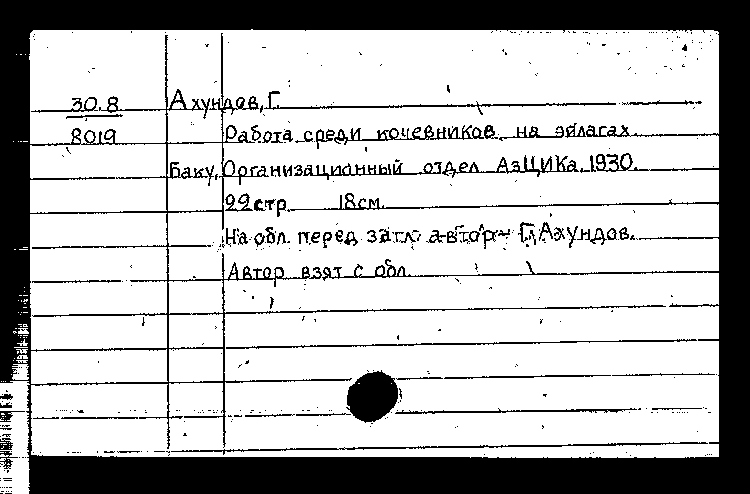 30.8 Ахундов, Г.
8019 Работа среди кочевников на эйлагах.
Баку, Организационный отдел АзЦИКа, 1930.
22 стр. 18 см.
На обл. перед загл. автор Г. Ахундов.
Автор взят с обл.